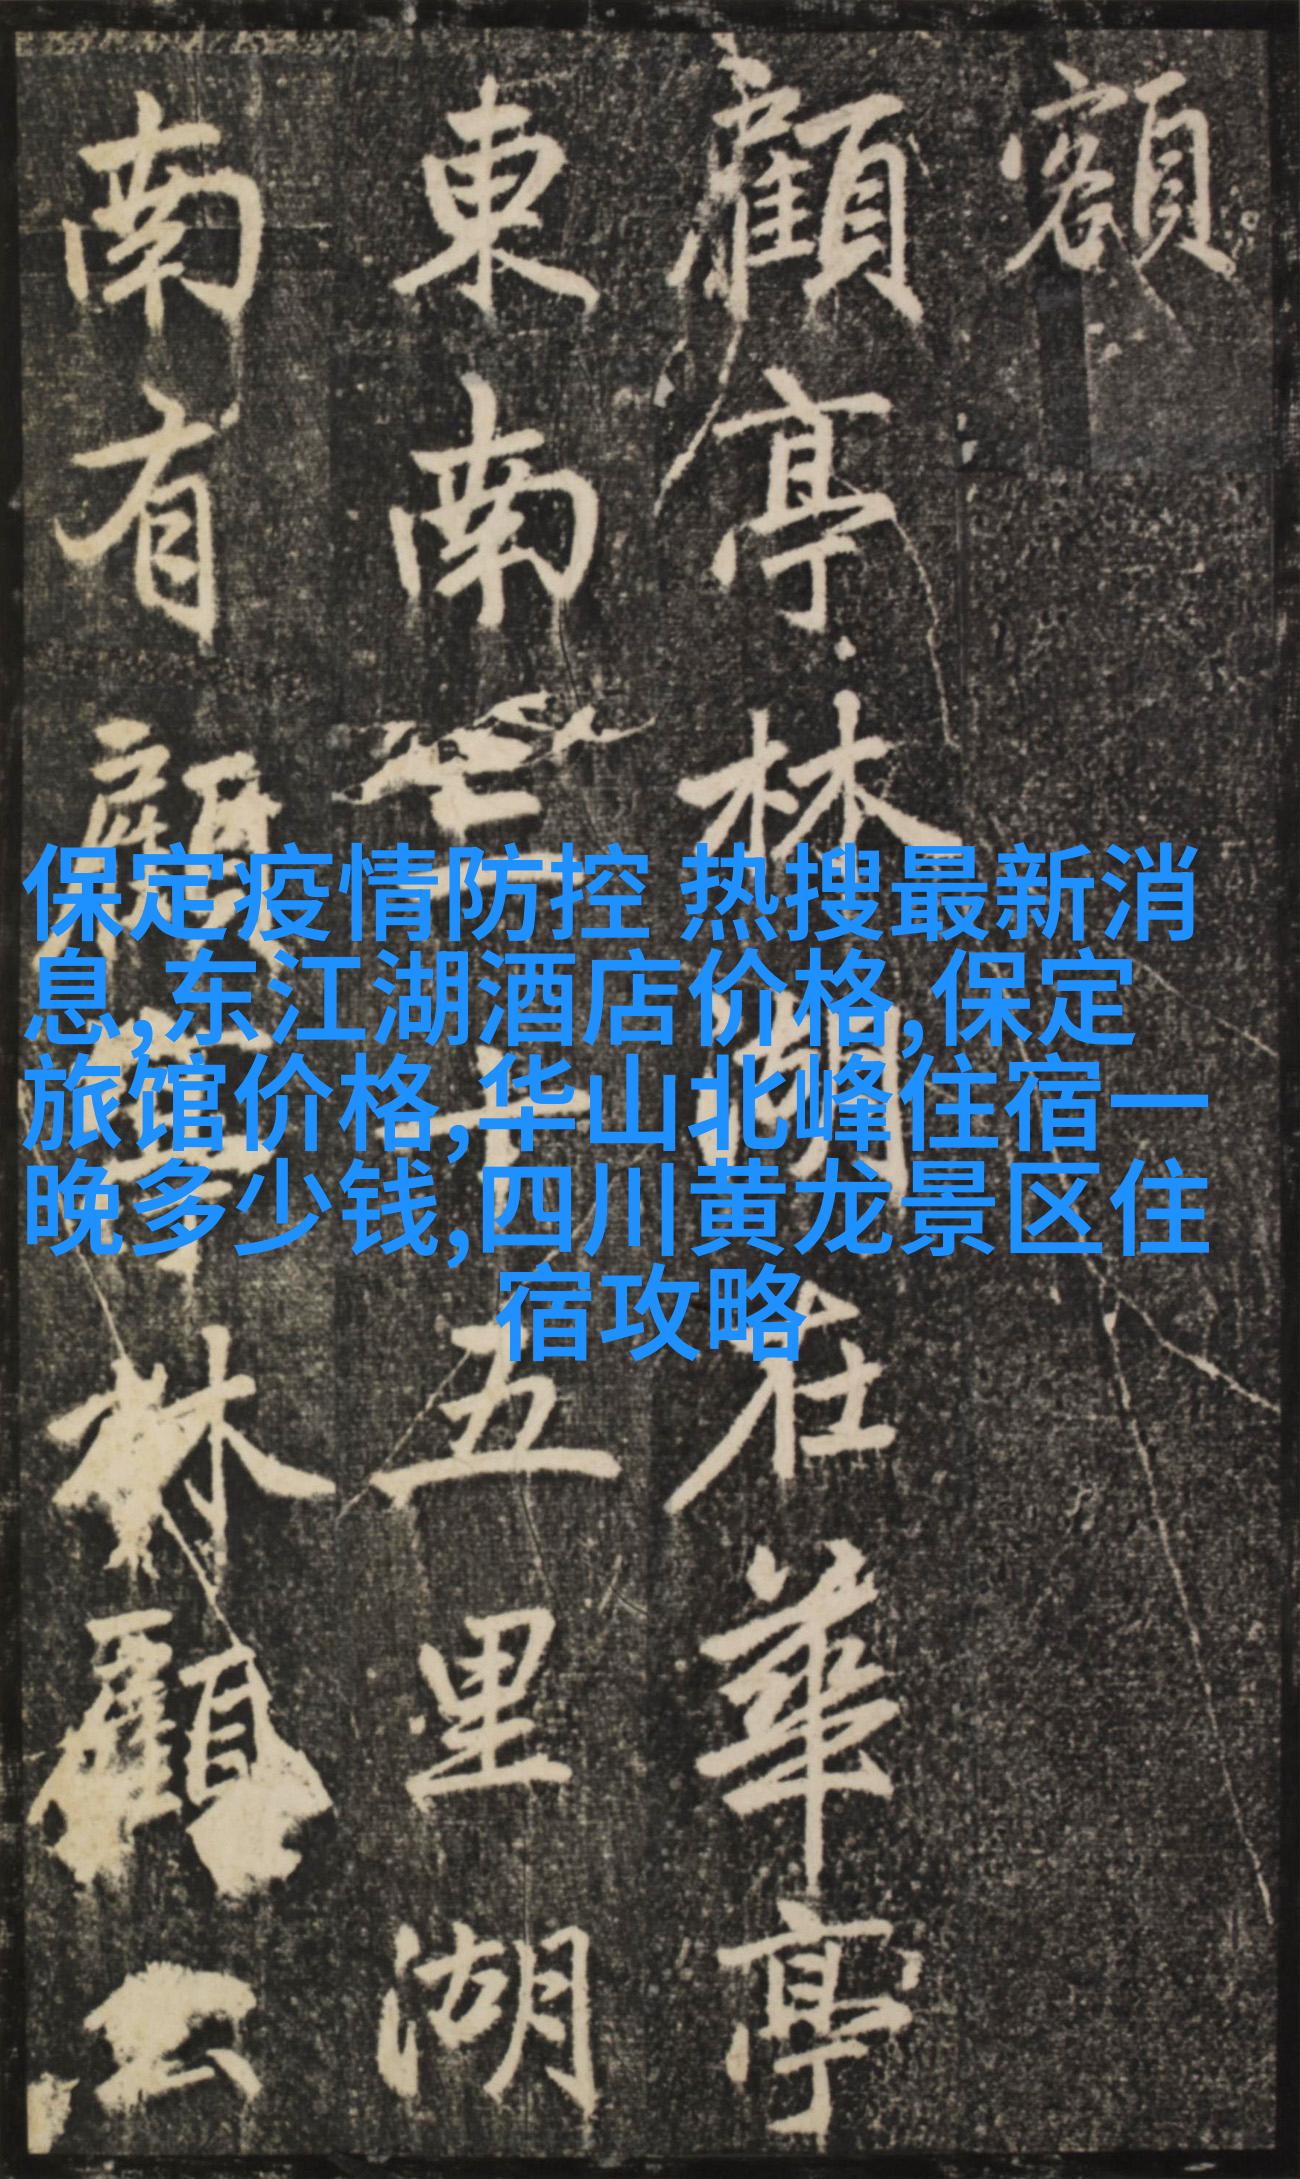 額
顧亭林湖在華亭
東南三十五里湖
南有顧亭林顧公
保定疫情防控 热搜最新消
息,东江湖酒店价格,保定
旅馆价格,华山北峰住宿一
晚多少钱,四川黄龙景区住
宿攻略